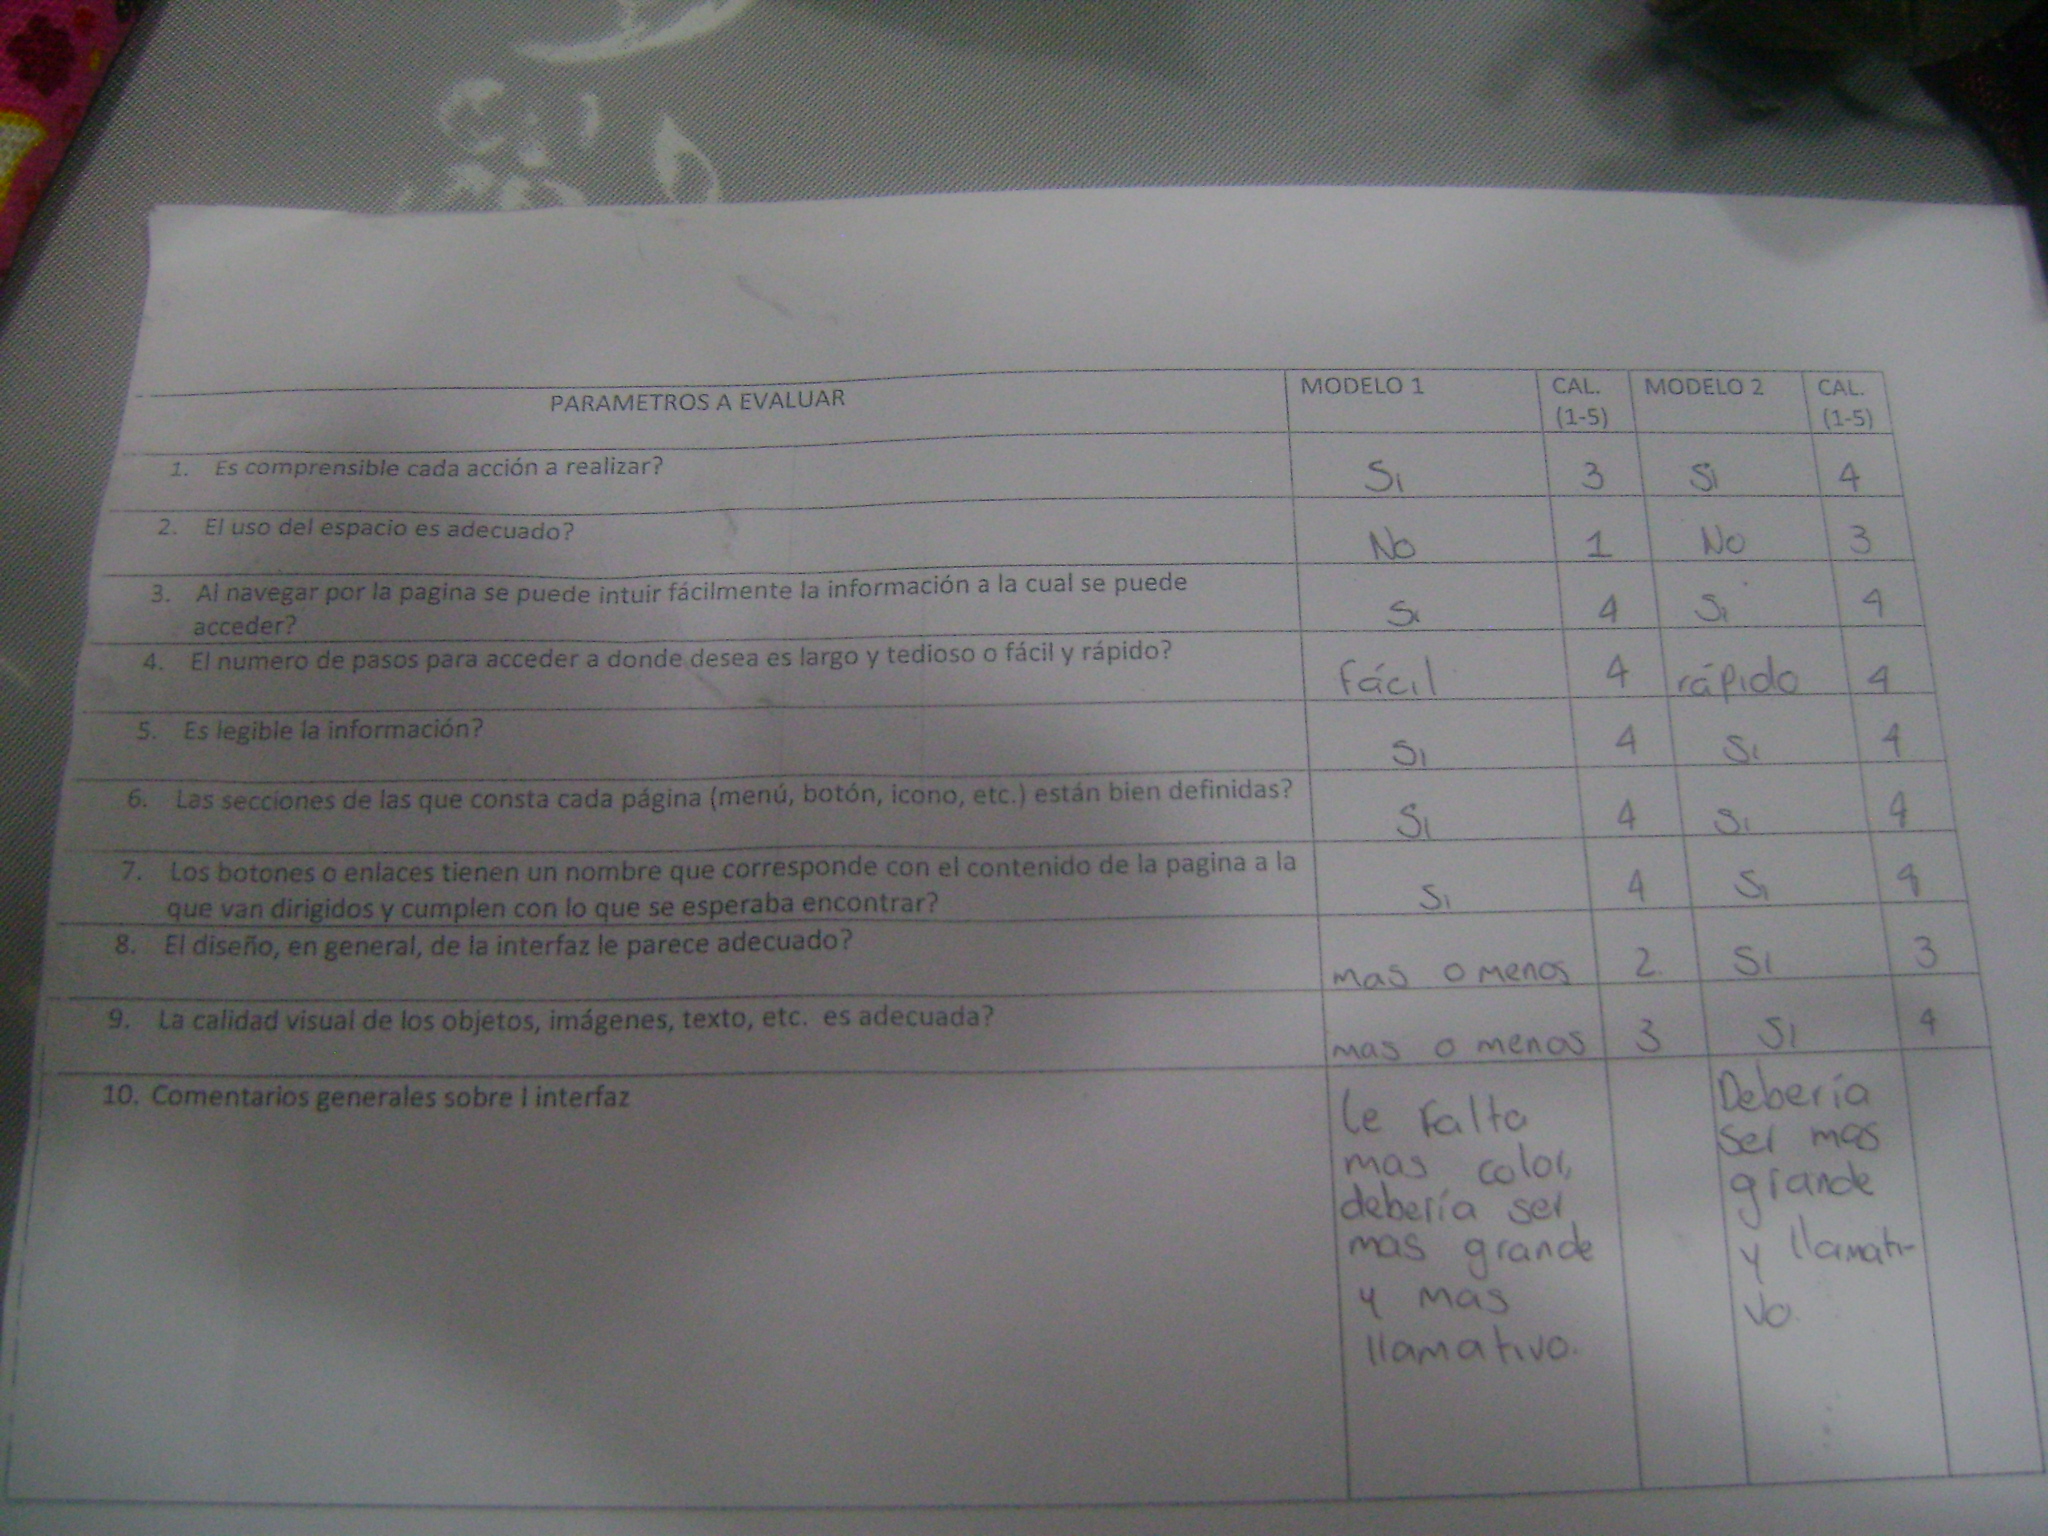 PARAMETROS A EVALUAR MODELO 1 CAL. (1-5) MODELO 2 CAL. (1-5)
1. Es comprensible cada acción a realizar? Si 3 Si 4
2. El uso del espacio es adecuado? No 1 No 3
3. Al navegar por la pagina se puede intuir fácilmente la información a la cual se puede
acceder? Si 4 Si 4
4. El numero de pasos para acceder a donde desea es largo y tedioso o fácil y rápido? fácil 4 rápido 4
5. Es legible la información? Si 4 Si 4
6. Las secciones de las que consta cada página (menú, botón, icono, etc.) están bien definidas? Si 4 Si 4
7. Los botones o enlaces tienen un nombre que corresponde con el contenido de la pagina a la
que van dirigidos y cumplen con lo que se esperaba encontrar? Si 4 Si 4
8. El diseño, en general, de la interfaz le parece adecuado? mas o menos 2 Si 3
9. La calidad visual de los objetos, imágenes, texto, etc. es adecuada? mas o menos 3 Si 4
10. Comentarios generales sobre l interfaz
le falta
mas color,
debería ser
mas grande
y mas
llamativo.
Debería
ser mas
grande
y llamati-
vo.